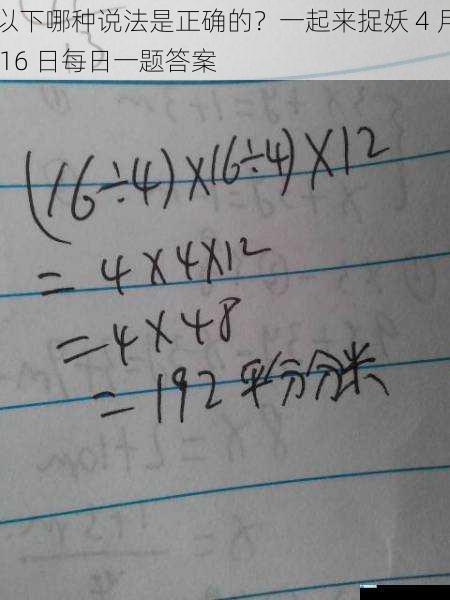 以下哪种说法是正确的？一起来捉妖 4 月
16 日每日一题答案
(16÷4)×(16÷4)×12
= 4×4×12
=4×48
=192平方分米